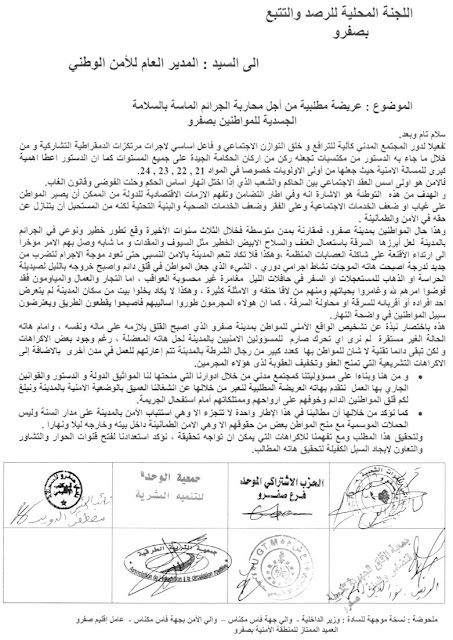 اللجنة المحلية للرصد والتتبع
بصفرو
الى السيد : المدير العام للأمن الوطني
الموضوع : عريضة مطلبية من أجل محاربة الجرائم الماسة بالسلامة
الجسدية للمواطنين بصفرو
سلام تام وبعد.
تفعيلا لدور المجتمع المدني كآلية للترافع و خلق التوازن الاجتماعي و فاعل اساسي لاجرات مرتكزات الدمقراطية التشاركية و من
خلال ما جاء به الدستور من مكتسبات تجعله ركن من اركان الحكامة الجيدة على جميع المستوات كما ان الدستور اعطا اهمية
كبرى للمسالة الامنية حيث جعلها من أولى الاولويات خصوصا في المواد 21 ,22 , 23 , 24.
فالامن هو اولى اسس العقد الاجتماعي بين الحاكم والشعب الذي إذا اختل انهار اساس الحكم وحلت الفوضى وقانون الغاب.
و الهدف من هذه التوطئة هو الاشارة انه وفي اطار التضامن وتفهم الازمات الاقتصادية للدولة من الممكن أن يصبر المواطن
على غياب او ضعف الخدمات الاجتماعية وعلى الفقر وضعف الخدمات الصحية والبنية التحتية لكنه من المستحيل أن يتنازل عن
حقه في الأمن و الطمأنينة .
وهذا حال المواطنين بمدينة صفرو، فمقارنة بمدن متوسطة فخلال الثلاث سنوات الأخيرة وقع تطور خطير ونوعي في الجرائم
بالمدينة لعل أبرزها السرقة باستعمال العنف والسلاح الابيض الخطير مثل السيوف والمقدات و ما شابه وصل بهم الامر مؤخرا
الى ارتداء الأقنعة على شاكلة العصابات المنظمة ،وهكذا فلا تكاد تنعم المدينة بالامن النسبي حتى تعود موجة الاجرام لتضرب من
جديد لدرجة اصبحت هاته الموجات نشاط اجرامي دوري ، الشيء الذي جعل المواطن في قلق دائم واصبح خروجه بالليل لصيدلية
الحراسة او الذهاب للمستعجلات او السفر في حافلات الليل مغامرة غير محسوبة العواقب ، اما التجار والعمال والمياومون فقد
فوضوا امرهم لله وغامروا بحياتهم ومنهم من لاقا حتفه و الامثلة كثيرة ، وهكذا لا يكاد يخلوا بيت من سكان المدينة لم يتعرض
احد افراده أو أقربائه للسرقة او محاولة السرقة . كما ان هؤلاء المجرمون طوروا اساليبهم فأصبحوا يقطعون الطريق ويعترضون
سبيل المواطنين في واضحة النهار.
هذه باختصار نبذة عن تشخيص الواقع الأمني للمواطن بمدينة صفرو الذي اصبح القلق يلازمه على ماله ونفسه ، وامام هاته
الحالة الغير مستقرة لم نرى اي تحرك صارم للمسؤولين الامنيين بالمدينة لحل هاته المعضلة ، رغم وجود بعض الاكراهات
و لكن تبقى دائما تقنية لا شأن للمواطن بها كعدد كبير من رجال الشرطة بالمدينة تتم إعارتهم للعمل في مدن أخرى بالاضافة إلى
الاكراهات التشريعية التي تمنح العفو وتخفيف العقوبة لذى هؤلاء المجرمين.
• و من هنا وبناءا على مسؤوليتنا كمجتمع مدني من خلال ادوارها التي منحتها لنا المواثيق الدولة و الدستور والقوانين
الجاري بها العمل نتقدم بهاته العريضة المطلبية لنعبر من خلالها عن انشغالنا العميق بالوضعية الامنية بالمدينة ونبلغ
لكم قلق المواطنين الدائم وخوفهم على ارواحهم وممتلكاتهم أمام استفحال الجريمة.
• كما نؤكد من خلالها أن مطالبنا في هذا الإطار واحدة لا تتجزء الا وهي استتباب الأمن بالمدينة على مدار السنة وليس
الحملات الموسمية مع منح المواطن بعض من حقوقهم الا وهي الامن الطمأنينة داخل بيته وخارجه ليلا ونهارا .
ولتحقيق هذا المطلب ومع تفهمنا للاكراهات التي يمكن ان تواجه تحقيقة ، نؤكد استعدادنا لفتح قنوات الحوار والتشاور
والتعاون لإيجاد السبل الكفيلة لتحقيق هاته المطالب.
الحزب الاشتراكي الموحد
فرع صفرو
جمعية الوحدة
للتنمية البشرية
منحوضة : نسخة موجهة للسادة : وزير الداخلية - والي جهة فاس مكناس – والي الأمن بجهة فاس مكناس - عامل إقليم صفرو
العميد الممتاز للمنطقة الأمنية بصفرو